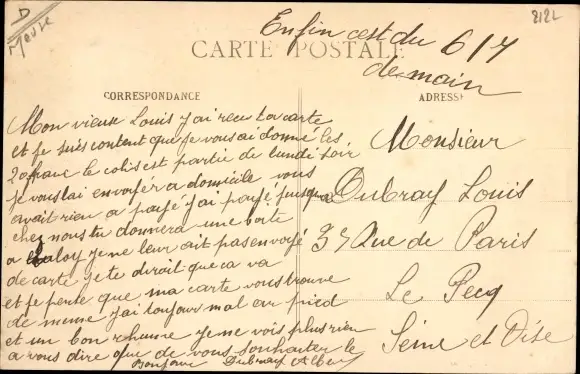 D
Meuse
8182
Enfin cest du 6/7
demain
CARTE POSTALE
CORRESPONDANCE
ADRESSE
Mon vieux Louis j'ai recu ta carte
et je suis content que je vous ai donné les
20 franc le colis est partie de lundi soir
je vous lai envoyer a domicile vous
avait rien a payé j'ai payé jusqua
chez nous tu donnera une boite
a je ne leur ait pas envoyé
de carte je te dirait que ca va
et je pense que ma carte vous trouve
de meme j'ai toujours mal au pied
et un bon rhume je ne vois plus rien
a vous dire que de vous souhaiter le
Bonjour Dubray Albert
Monsieur
Dubray Louis
35 Rue de Paris
Le Pecq
Seine et Oise